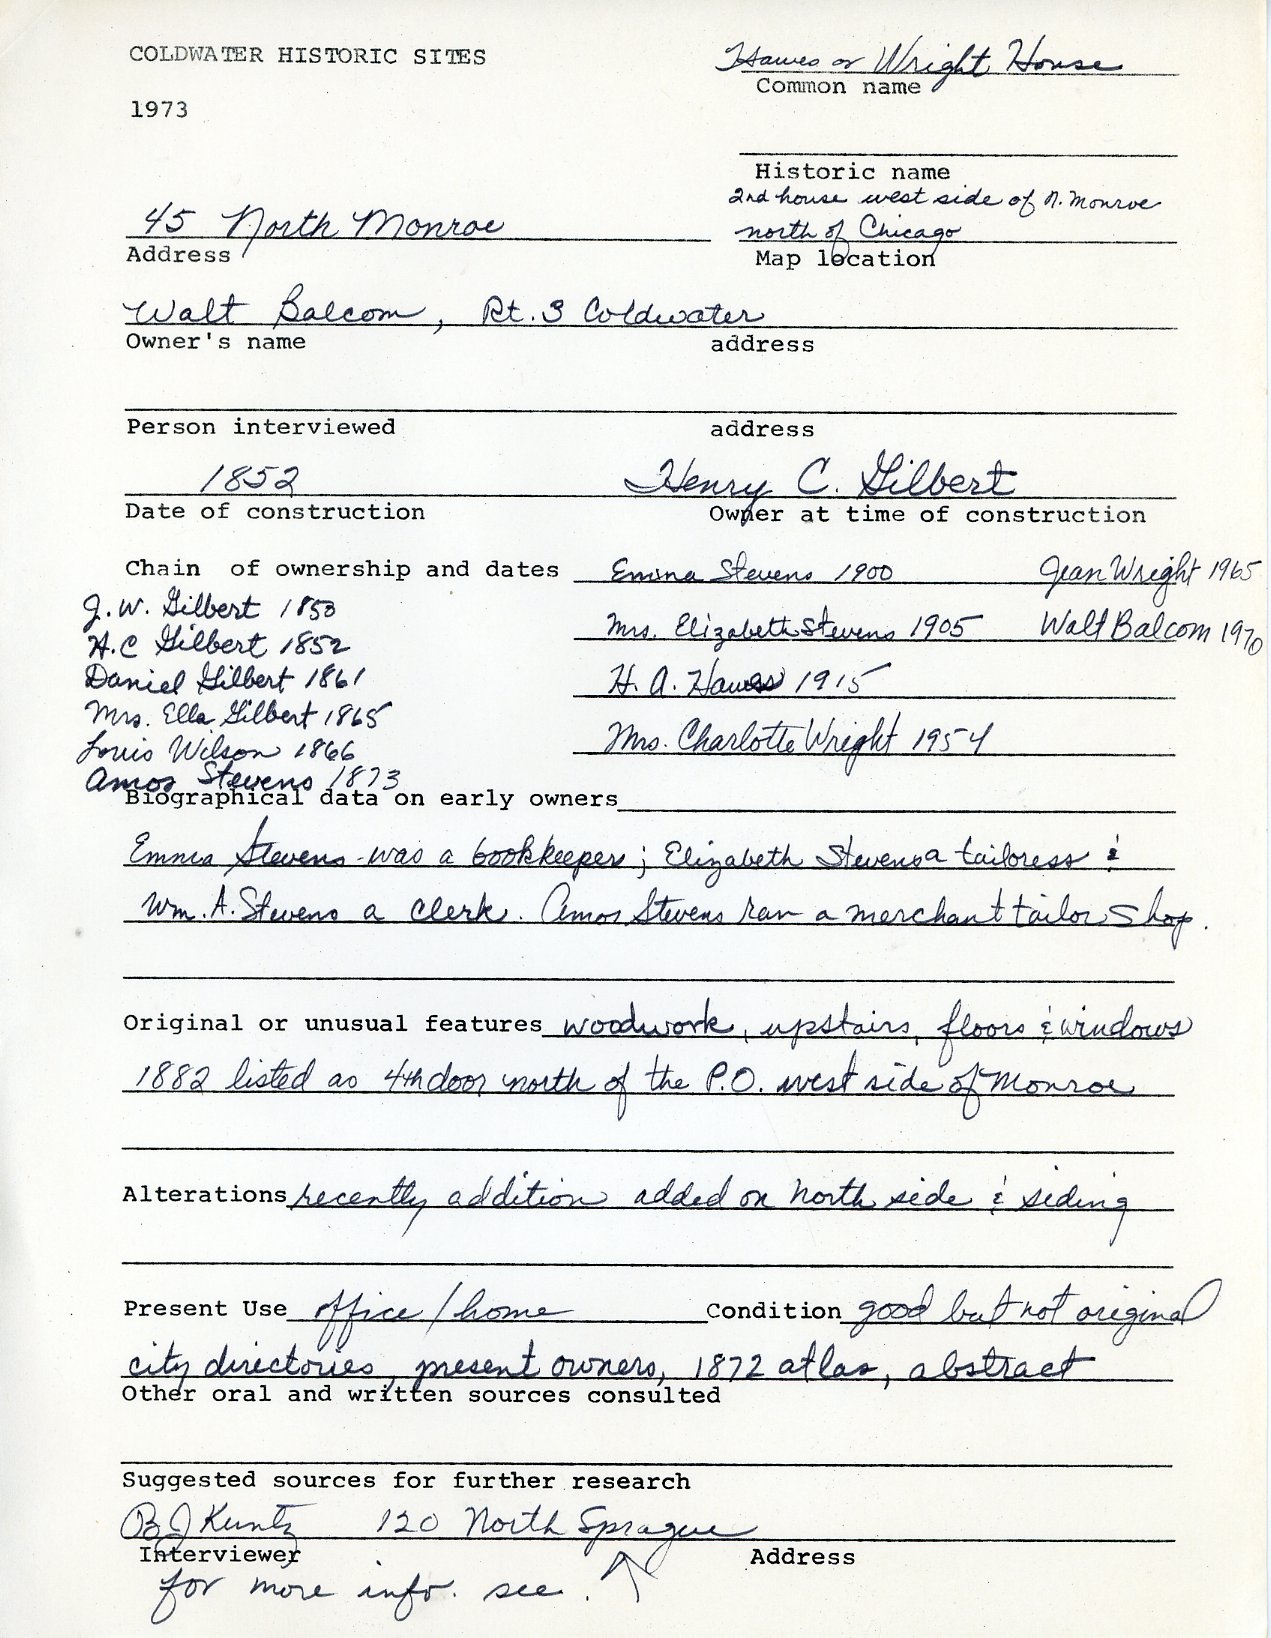 COLDWATER HISTORIC SITES
1973
Hawes or Wright House
Common name
Historic name
2nd house west side of N. Monroe
north of Chicago
Map location
45 North Monroe
Address
Walt Balcom, Rt. 3 Coldwater
Owner's name address
Person interviewed address
1852 Henry C. Gilbert
Date of construction Owner at time of construction
Chain of ownership and dates Emma Stevens 1900 Jean Wright 1965
J. W. Gilbert 1853
Mrs. Elizabeth Stevens 1905 Walt Balcom 1970
H. C Gilbert 1852
Daniel Gilbert 1861 H. A. Hawes 1915
Mrs. Ella Gilbert 1865
Louis Wilson 1866 Mrs. Charlotte Wright 1954
Amos Stevens 1873
Biographical data on early owners
Emma Stevens was a bookkeeper; Elizabeth Stevens a tailoress &
Wm. A. Stevens a clerk. Amos Stevens ran a merchant tailor shop.
Original or unusual features woodwork, upstairs, floors & windows
1882 listed as 4th door north of the P.O. west side of Monroe
Alterations recently addition added on north side & siding
Present Use office/home Condition good but not original
city directories, present owners, 1872 atlas, abstract
Other oral and written sources consulted
Suggested sources for further research
B J Kuntz 120 North Sprague
Interviewer Address
for more info. see.